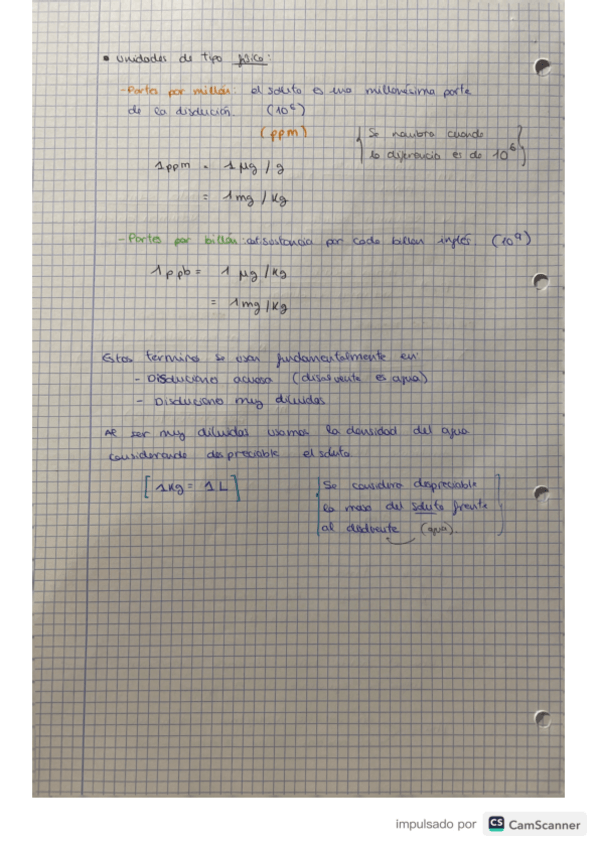 • Unidades de tipo físico:
- Partes por millón: el soluto es una millonésima parte
de la disolución. (10⁶)
(ppm)
Se nombra cuando
la diferencia es de 10⁶
1 ppm = 1 μg / g
= 1 mg / Kg
- Partes por billón: sustancia por cada billón inglés (10⁹)
1 ppb = 1 μg / Kg
= 1 mg / Kg
Estos términos se usan fundamentalmente en:
- Disoluciones acuosas (disolvente es agua)
- Disoluciones muy diluidas
Al ser muy diluidas usamos la densidad del agua
considerando despreciable el soluto
[1 Kg = 1 L]
Se considera despreciable
la masa del soluto frente
al disolvente (agua).
impulsado por CS CamScanner